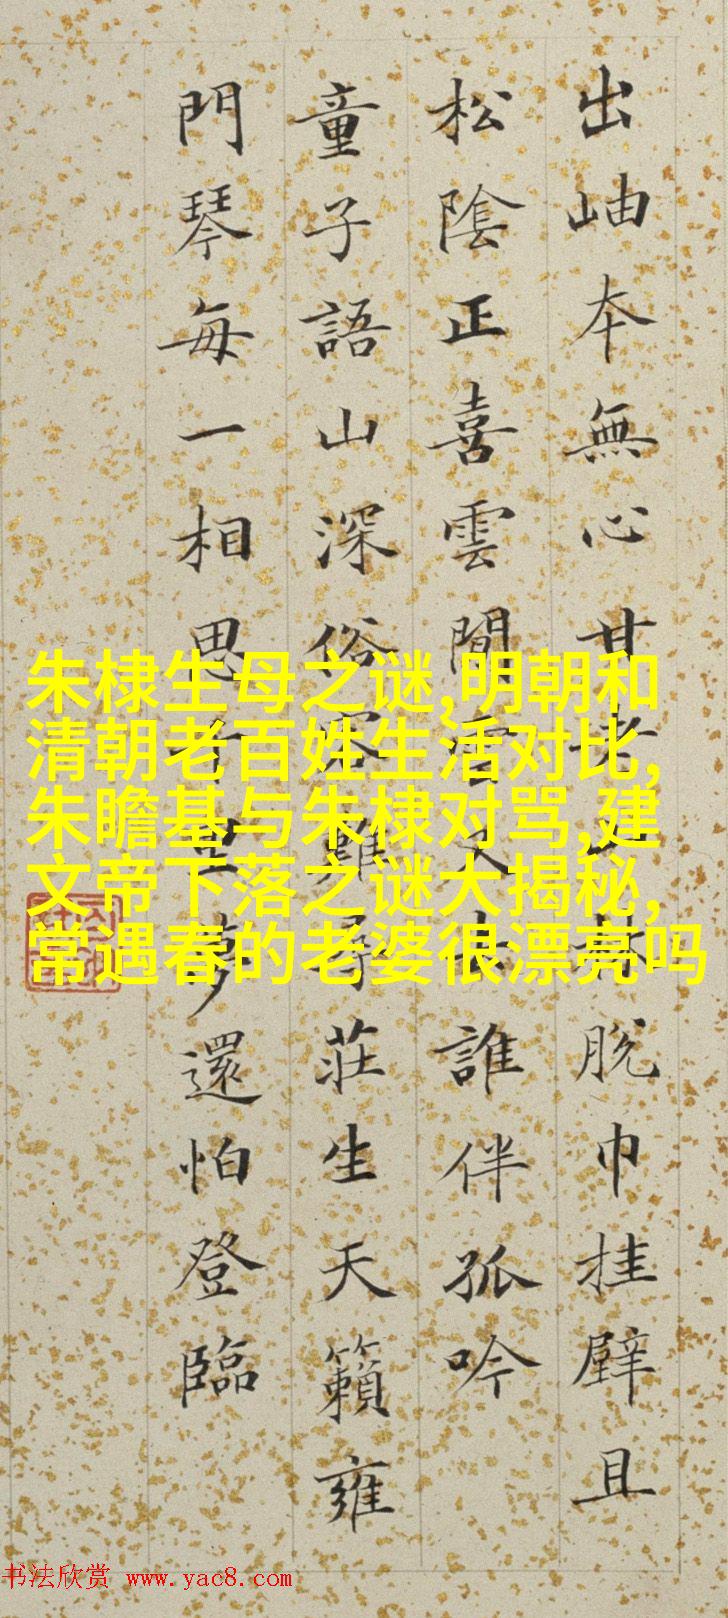 出岫本無心甘老林脫巾挂壁且
松陰正喜雲閒雲又去誰伴孤吟
童子語山深俗客難尋莊生天籟雍
門琴每一相思里夢還怕登臨
朱棣生母之谜,明朝和
清朝老百姓生活对比,
朱瞻基与朱棣对骂,建
文帝下落之谜大揭秘,
常遇春的老婆很漂亮吗
书法欣赏 www.yac8.com